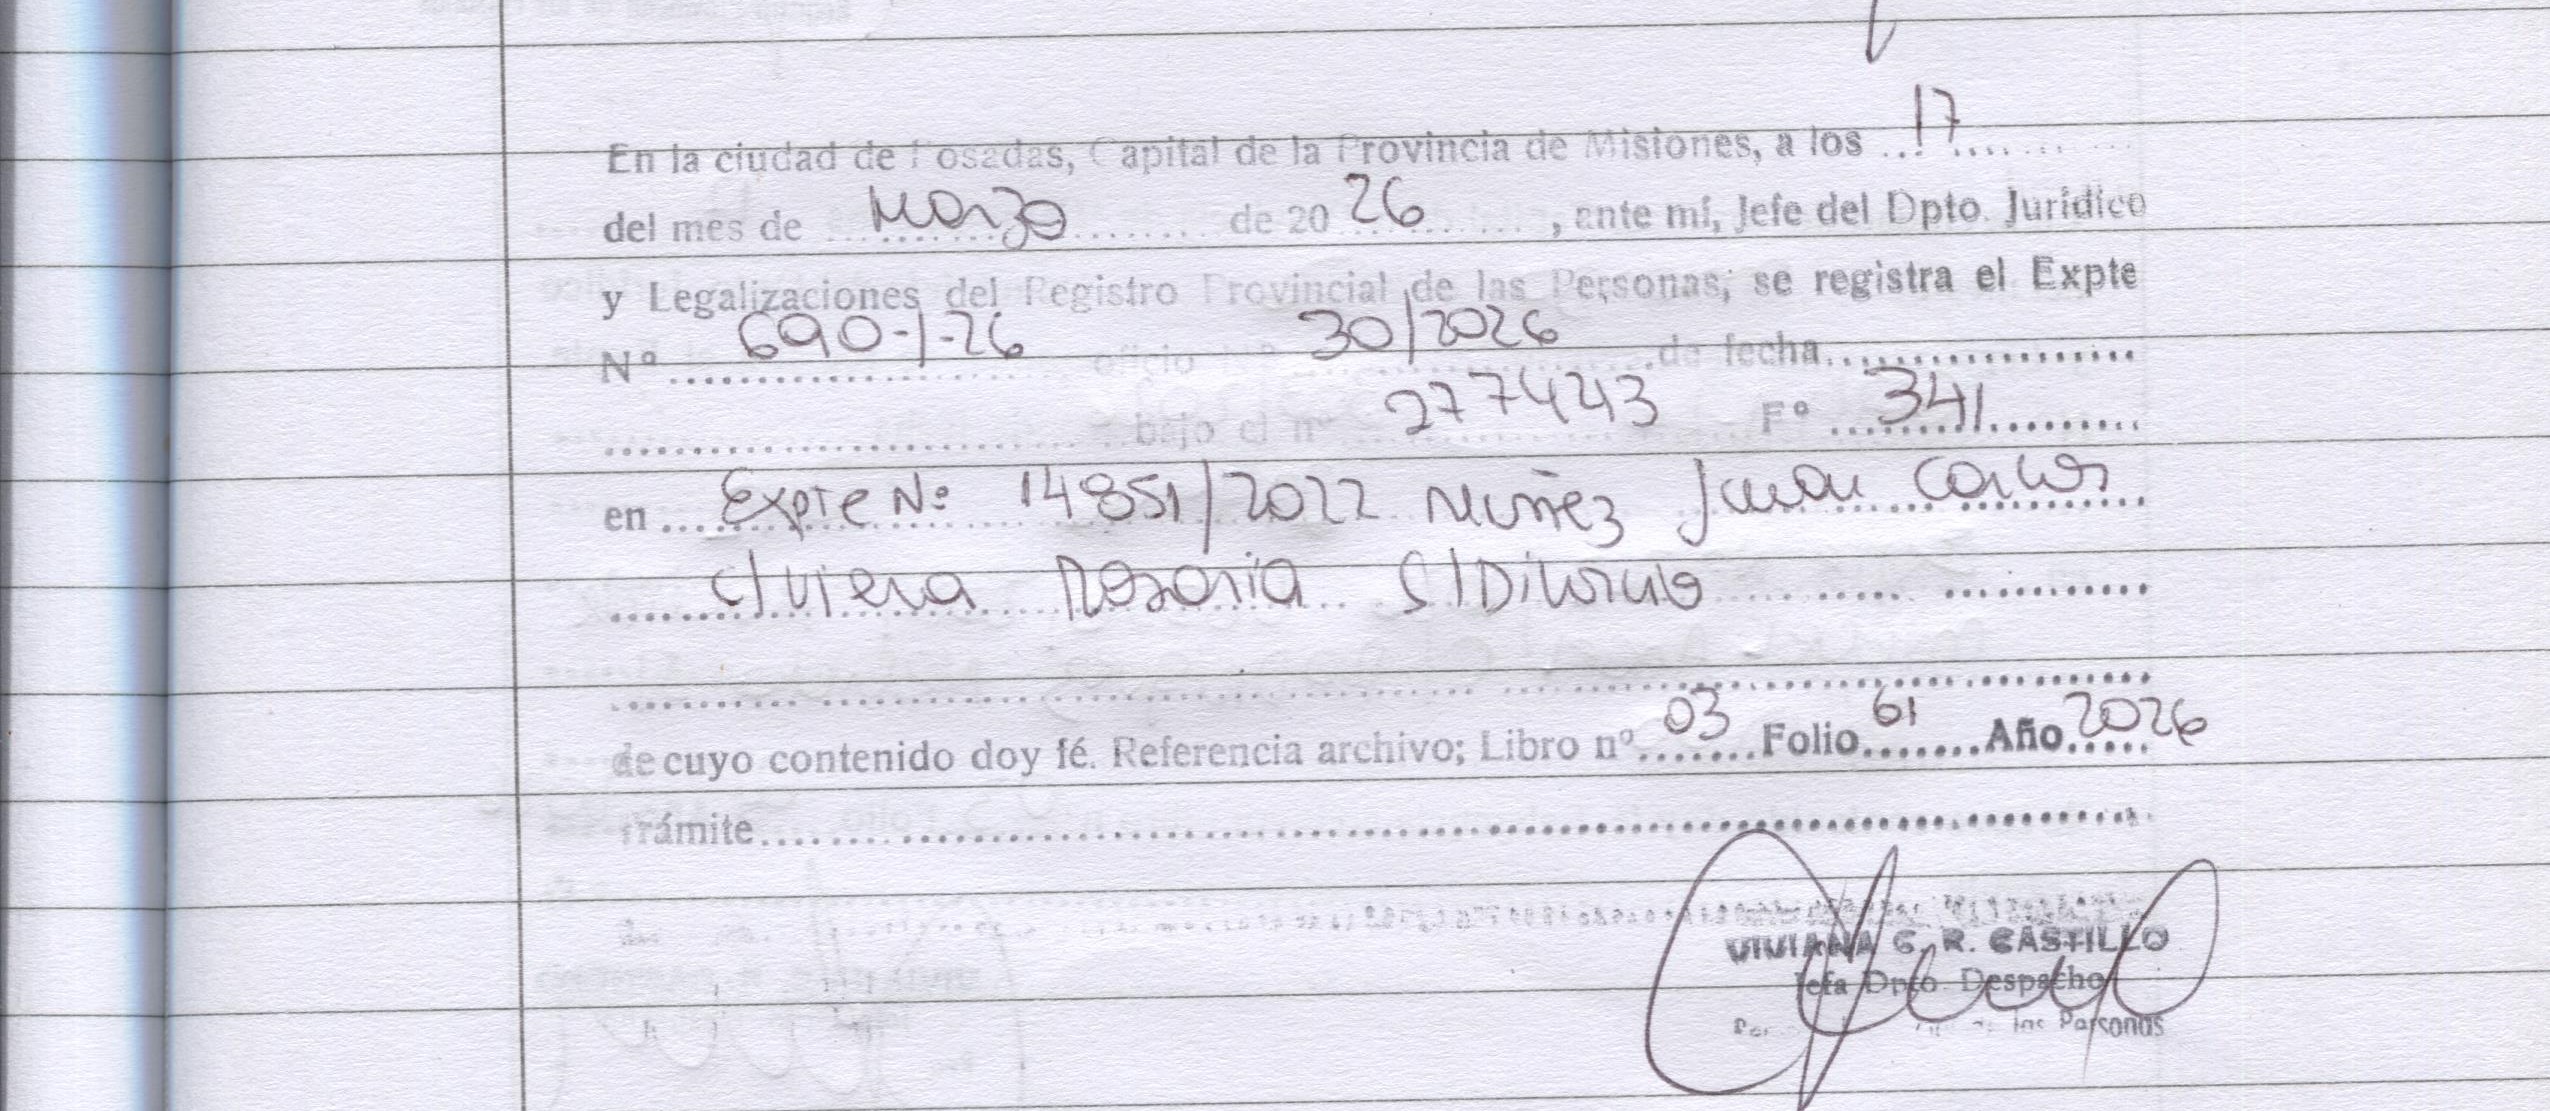 En la ciudad de Posadas, Capital de la Provincia de Misiones, a los ..17.......
del mes de ....Marzo.......... de 20 26 ........, ante mí, Jefe del Dpto. Jurídico
y Legalizaciones del Registro Provincial de las Personas; se registra el Expte
Nº 690-J-26 oficio Nº 30/2026 de fecha..................
.............................. bajo el nº 2774243 Fº 341
en Expte Nº 14851/2022 Nuñez Juan Carlos
c/ Viera Rosaria S/Divorcio
de cuyo contenido doy fé. Referencia archivo; Libro nº 03 Folio 61 Año 2026
trámite..............................
VIVIANA G. R. CASTILLO
Jefa Dpto. Despacho
las Personas